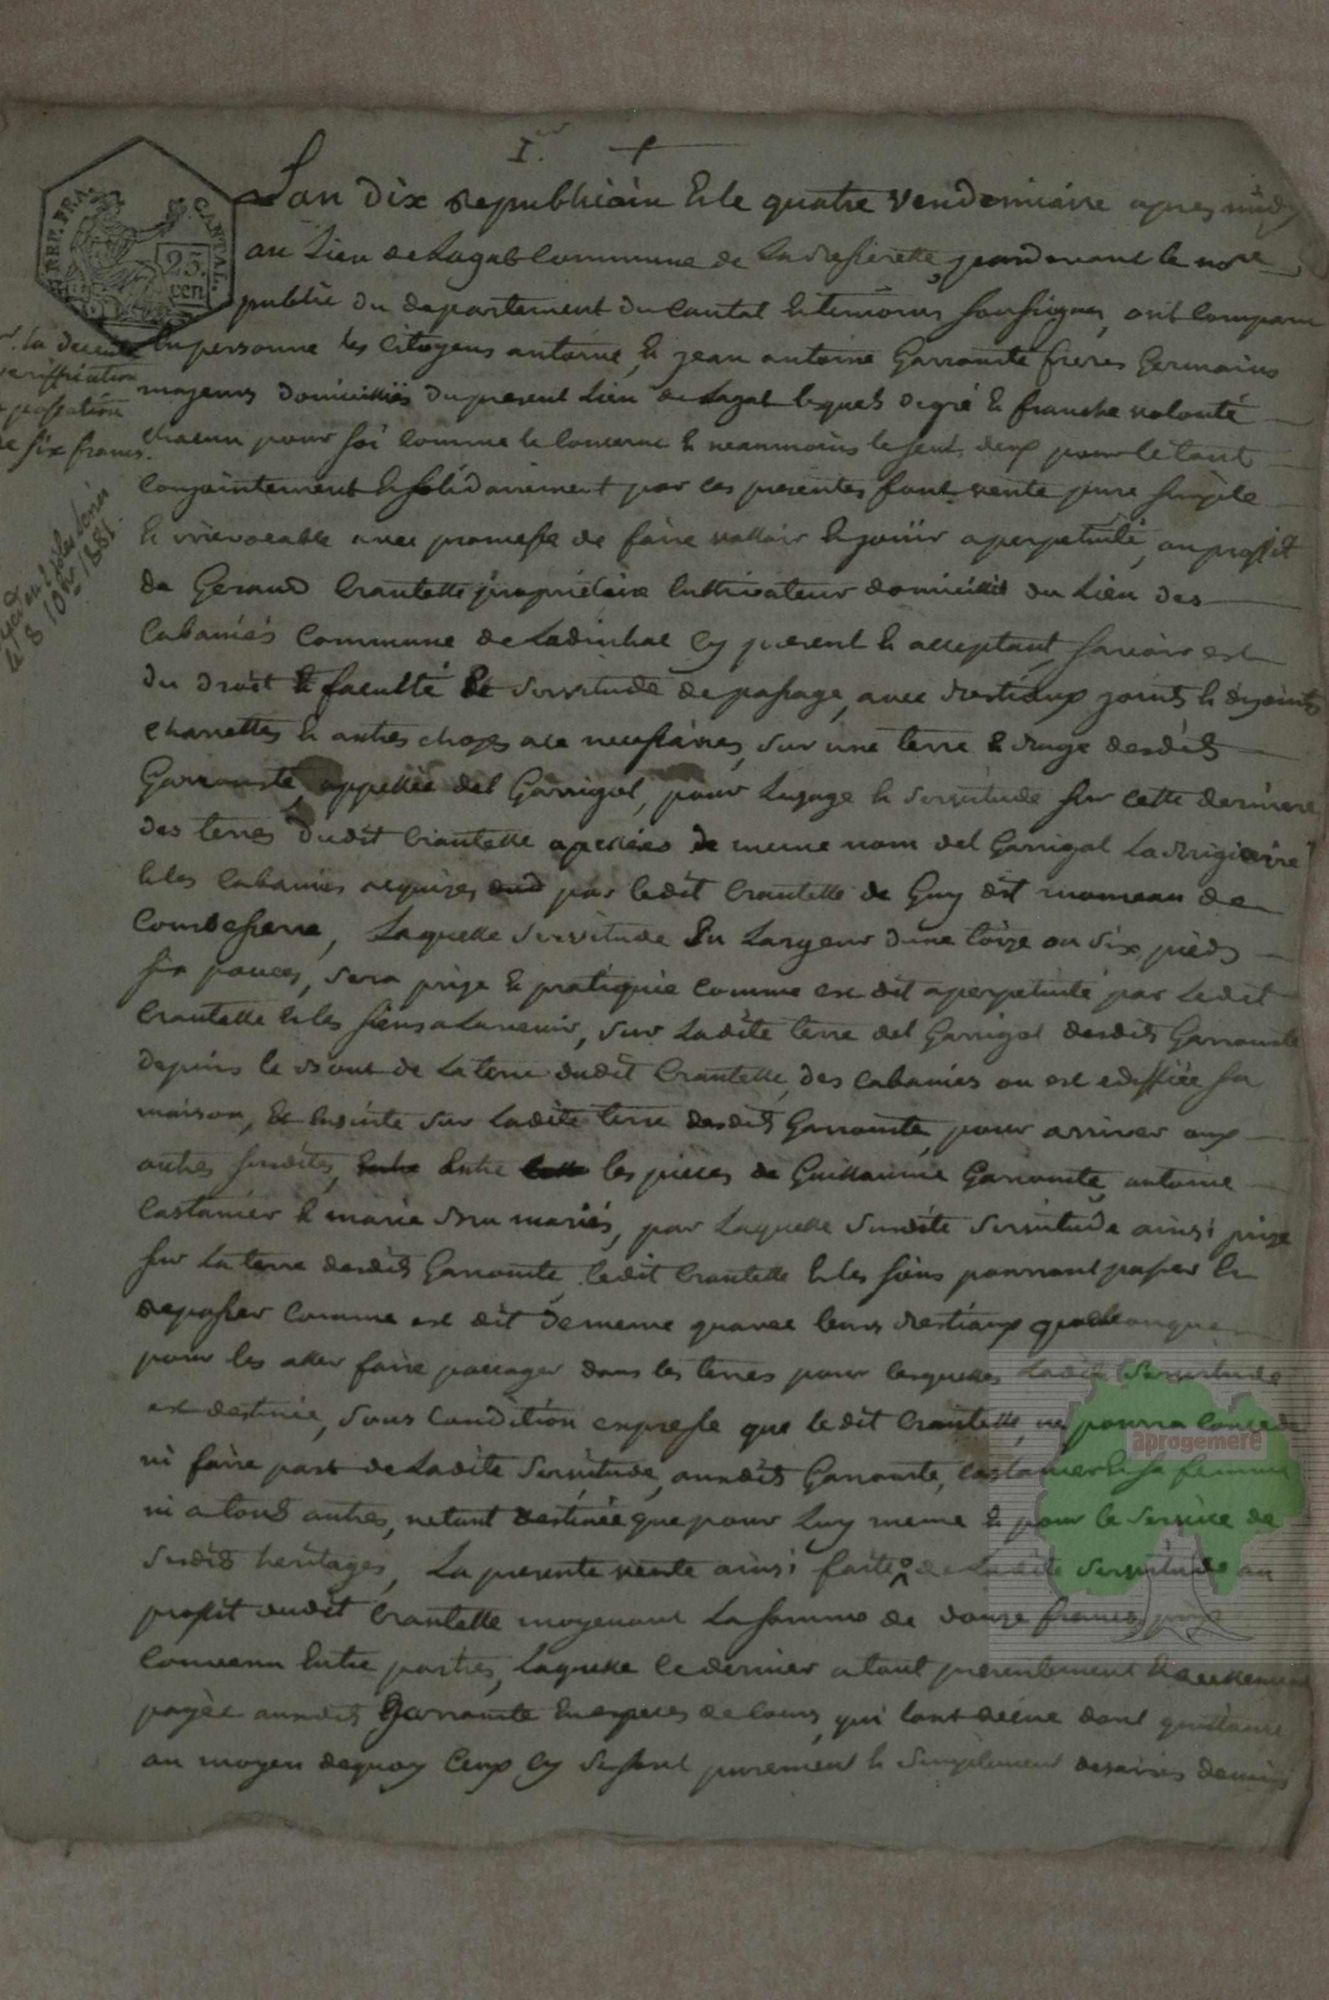 1er
L'an dix republicain & le quatre vendemiaire apres midy
au Lieu de Lagat Commune de Lacresserette, pardevant le nore
REP. FRA. CANTAL.
25. cen
public du departement du Cantal & temoins soussignes, ont Comparu
En personne les Citoyens antoine, & jean antoine Garrouste freres Germains
majeurs domicilliés du present Lieu de Lagat lequels de gré & franche volonté
chacun pour soi Comme le Concerne & neanmoins le seul, deux pour le tout
Conjointement & solidairement par ces presentes font vente pure simple
& irrevocable avec promesse de faire valloir & jouir a perpetuité, au proffit
de Geraud Crantelle propriétaire Cultivateur domicillié du Lieu des
Cabaniés Commune de Ladinhac Cy present & acceptant, savoir est
du droit & faculté de Servitude de passage, avec Bestiaux joints & dejoints
charrettes & autres choses a ce necessaires, sur une terre & Buge desdits
Garrouste appellée del Garrigol, pour Lusage & servitude sur cette derniere
des terres dudit Crantelle apellées de meme nom del Garrigal La Brugieire
& les Cabanies acquises par ledit Crantelle de Guy dit momeau de
Combesserre, Laquelle Servitude En Largeur d'une toize ou six pieds
six pouces, sera prize & pratiquée Comme est dit a perpetuité par Ledit
Crantelle & les siens a Lavenir, sur Ladite terre del Garrigol desdits Garrouste
depuis le Bout de La terre dudit Crantelle, des Cabanies ou est ediffiée sa
maison, & Ensuite sur Ladite terre desdits Garrouste, pour arriver aux
autres susdites, Entre les pieces de Guillaume Garrouste, antoine
Castanier & marie Bru mariés, par Laquelle Susdite Servitude ainsi prize
sur La terre desdits Garrouste, ledit Crantelle & les siens pourront passer &
repasser Comme est dit de meme qu'avec leurs Bestiaux quelconques
pour les aller faire paccager dans les terres pour lesquelles Ladite Servitude
est destinée, sous Condition expresse que ledit Crantelle, ne pourra Conceder
ni faire part de Ladite Servitude, auxdits Garrouste, Castanier & sa femme
ni a tous autres, netant destinée que pour Luy meme & pour le Service de
Susdits heritages, La presente vente ainsi faite de Ladite Servitude au
proffit dudit Crantelle moyenant La somme de douze francs, prix
Convenu Entre parties, Laquelle ce dernier a tout presentement & reellement
payée auxdits Garrouste En especes de Cours, qui l'ont recue dont quittance
au moyen dequoy Ceux Cy se sont purement & simplement desaisis demis
la
verification
six francs.
le 8 10bre 1881.
aprogemere